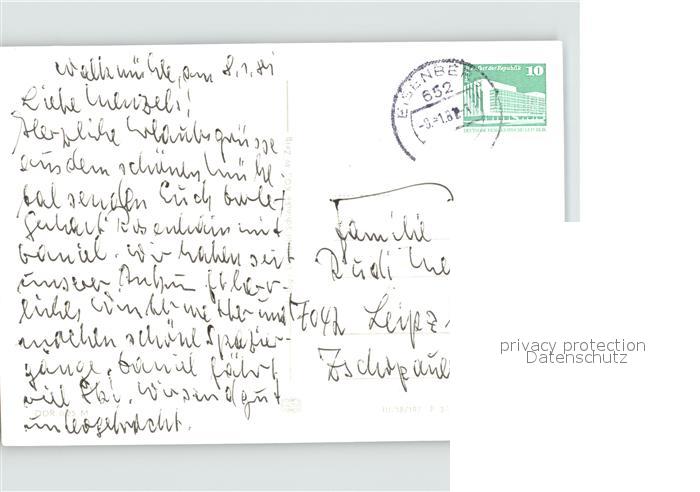 Walkmühle, am 8.1.81
Liebe Menzels!
Herzliche Urlaubsgrüsse
aus dem schönen Mühl-
tal senden Euch
Gerhart Rosenhain mit
Daniel. Wir haben seit
unserer herr-
liches Winterwetter und
machen schöne Spazier-
gänge. Daniel fährt
viel Ski. Wir sind gut
untergebracht.
DDR M
EISENBERG
652
10
der Republik
DEUTSCHE DEMOKRATISCHE REPUBLIK
Familie
Rudi Me
7042 Leipz
Zschopaue
privacy protection
Datenschutz